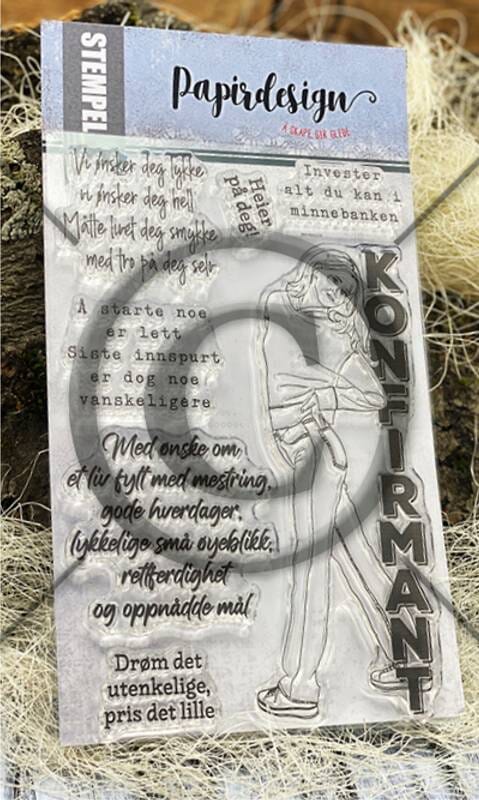 STEMPEL
Papirdesign
Å SKAPE GIR GLEDE
Vi ønsker deg lykke
vi ønsker deg hell
Måtte livet deg smykke
med tro på deg selv
Heier
på deg!
Invester
alt du kan i
minnebanken
KONFIRMANT
Å starte noe
er lett
Siste innspurt
er dog noe
vanskeligere
Med ønske om
et liv fylt med mestring,
gode hverdager,
lykkelige små øyeblikk,
rettferdighet
og oppnådde mål
Drøm det
utenkelige,
pris det lille
©